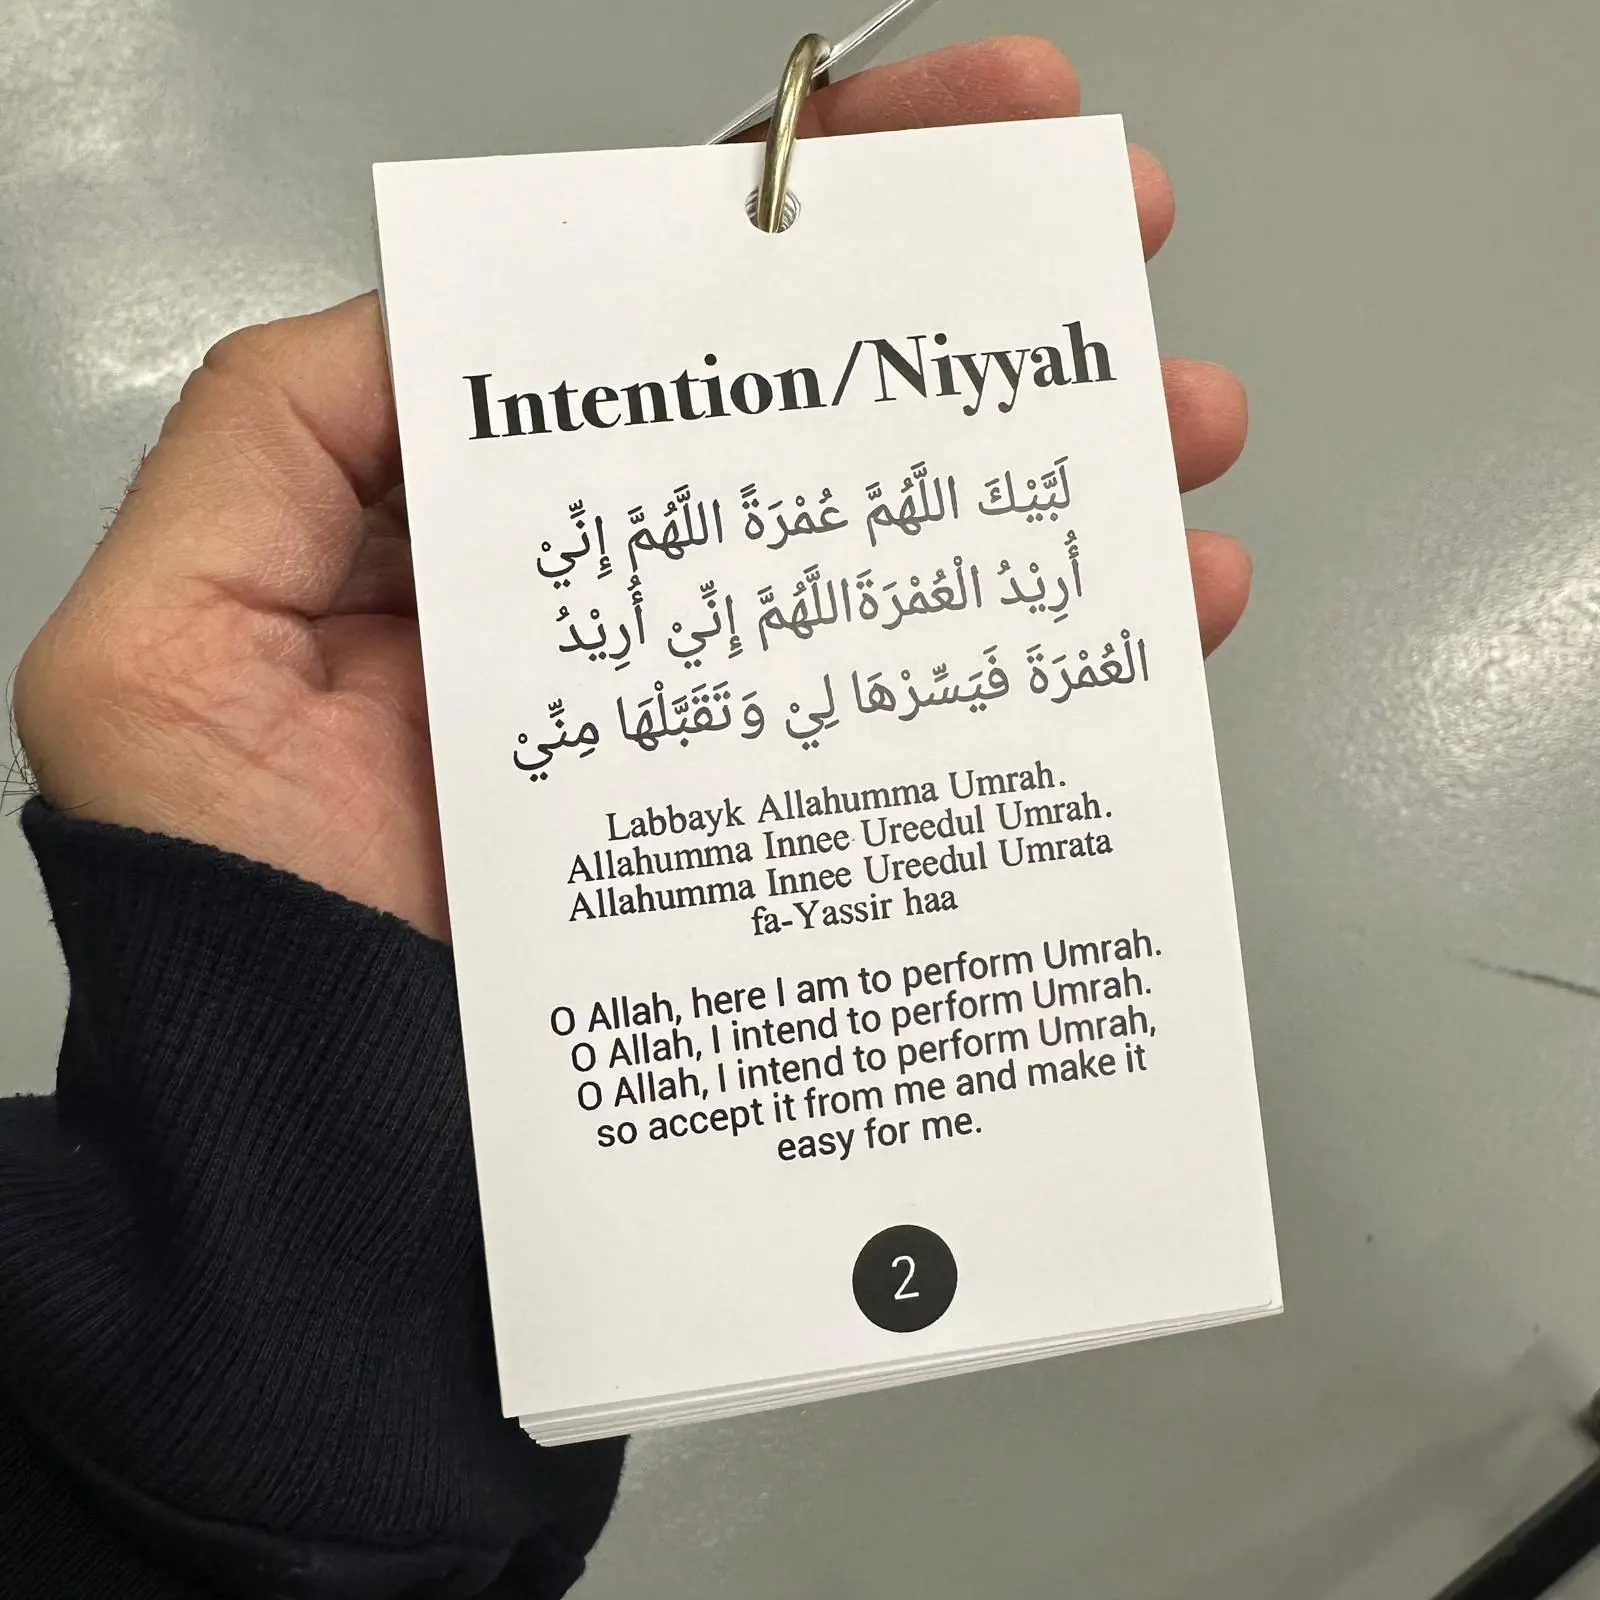 Intention/Niyyah
لَبَّيْكَ اللَّهُمَّ عُمْرَةً اللَّهُمَّ إِنِّيْ
أُرِيْدُ الْعُمْرَةَاللَّهُمَّ إِنِّيْ أُرِيْدُ
الْعُمْرَةَ فَيَسِّرْهَا لِيْ وَتَقَبَّلْهَا مِنِّيْ
Labbayk Allahumma Umrah.
Allahumma Innee Ureedul Umrah.
Allahumma Innee Ureedul Umrata
fa-Yassir haa
O Allah, here I am to perform Umrah.
O Allah, I intend to perform Umrah.
O Allah, I intend to perform Umrah,
so accept it from me and make it
easy for me.
2